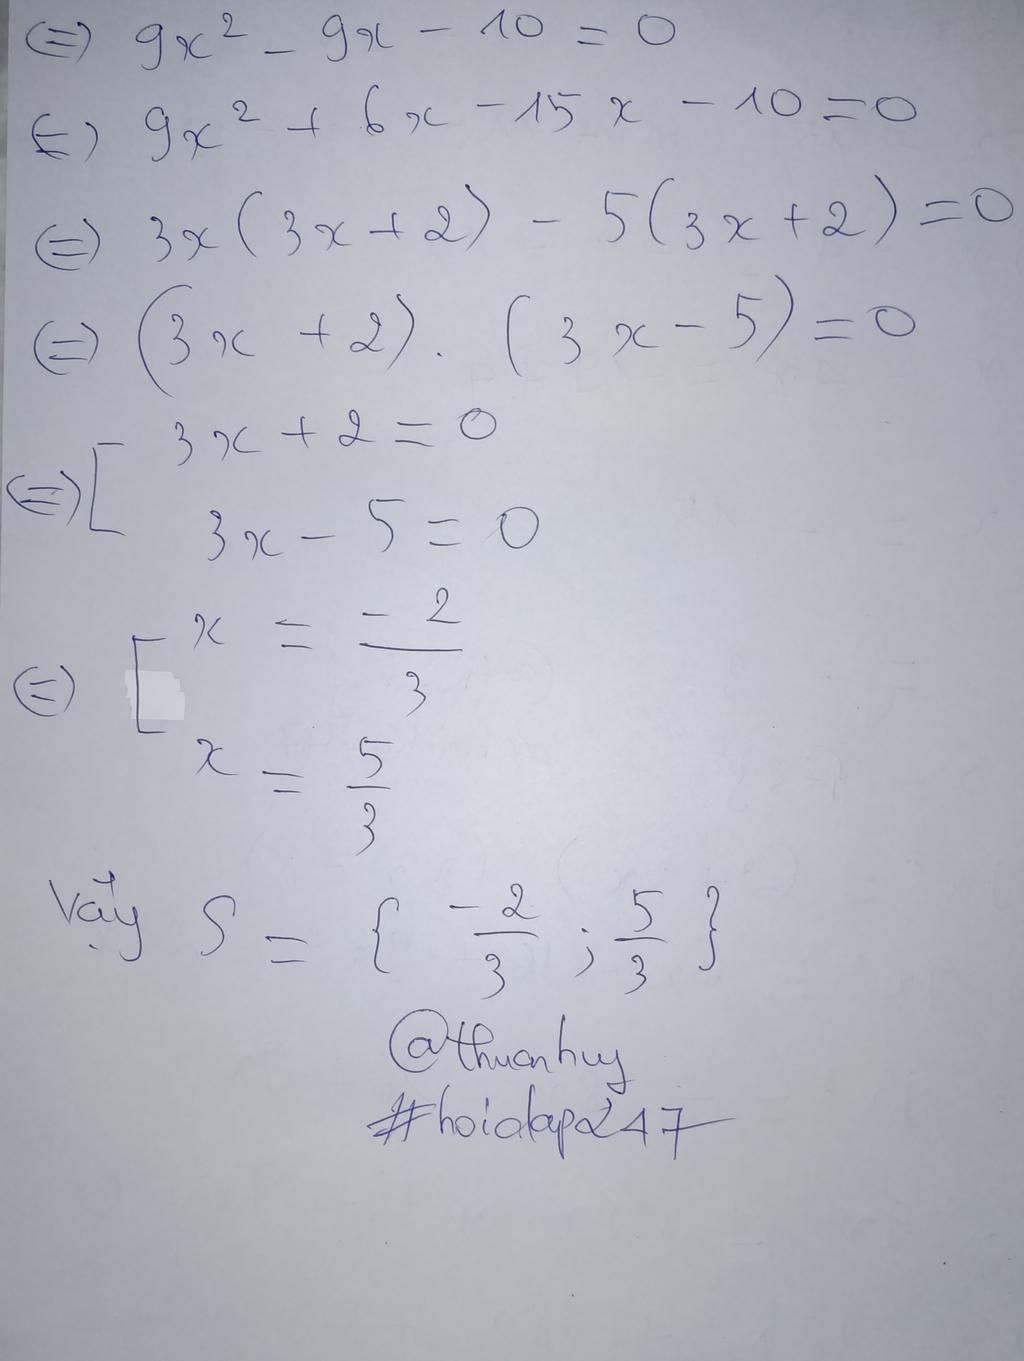 (=) 9x² - 9x - 10 = 0
(=) 9x² + 6x - 15x - 10 = 0
(=) 3x(3x+2) - 5(3x+2) = 0
(=) (3x+2).(3x-5) = 0
(=) [ 3x+2 = 0
3x - 5 = 0
(=) [ x = -2/3
x = 5/3
Vậy S = { -2/3 ; 5/3 }
@thuanhuy
#hoidap247